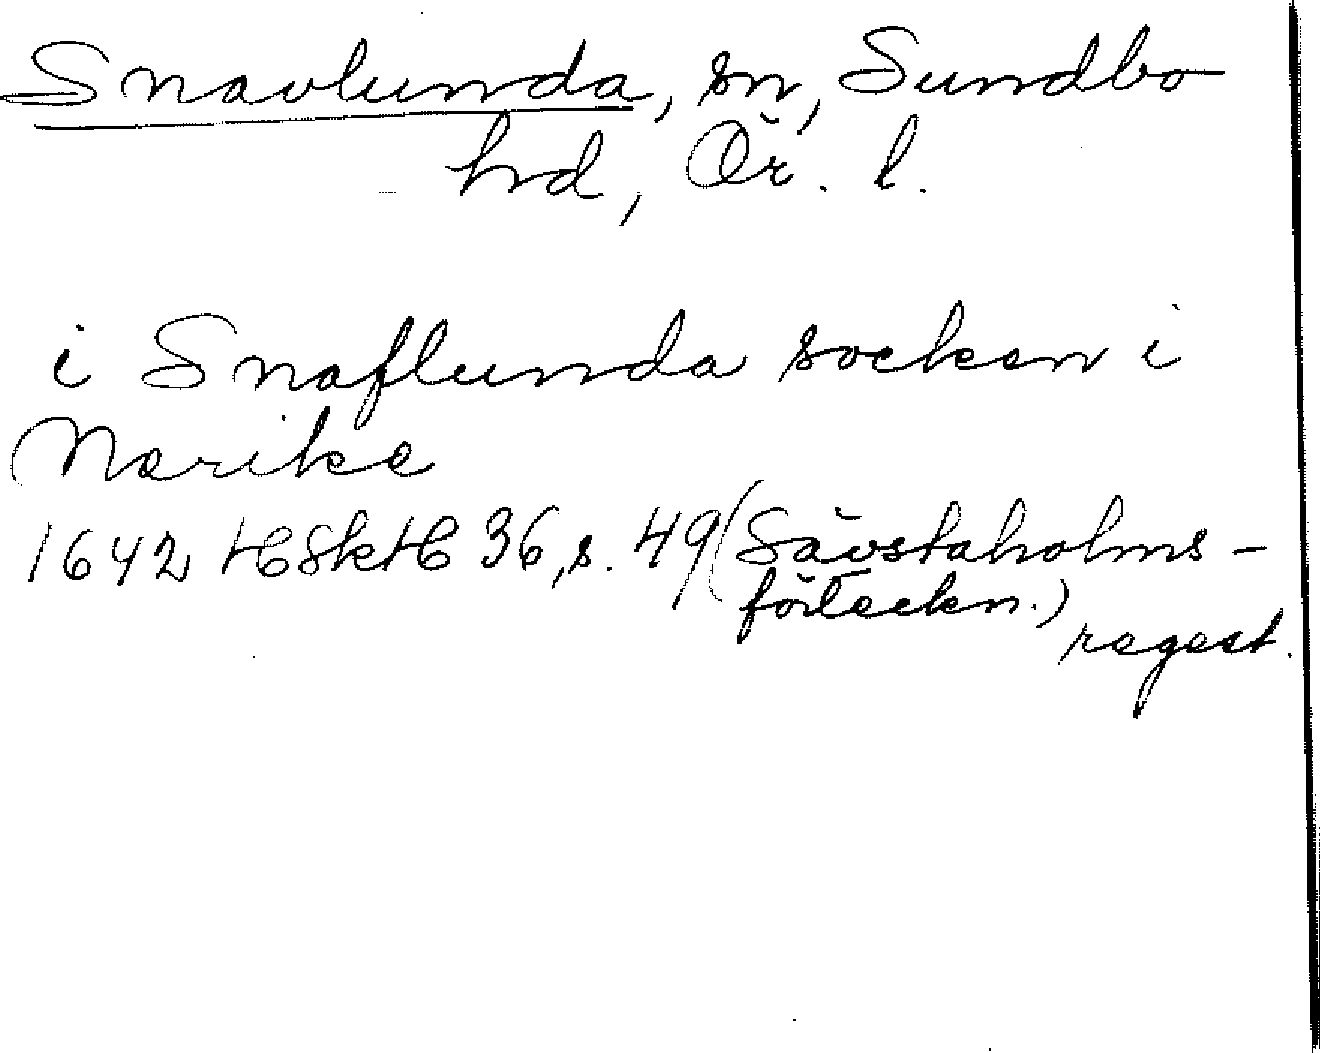 Snavlunda, sn, Sundbo
hd, Ör. l.
i Snaflunda socken i
Nerike
1642 HSkH 36, s. 49 (Sävstaholms-
förteckn.)
regest.